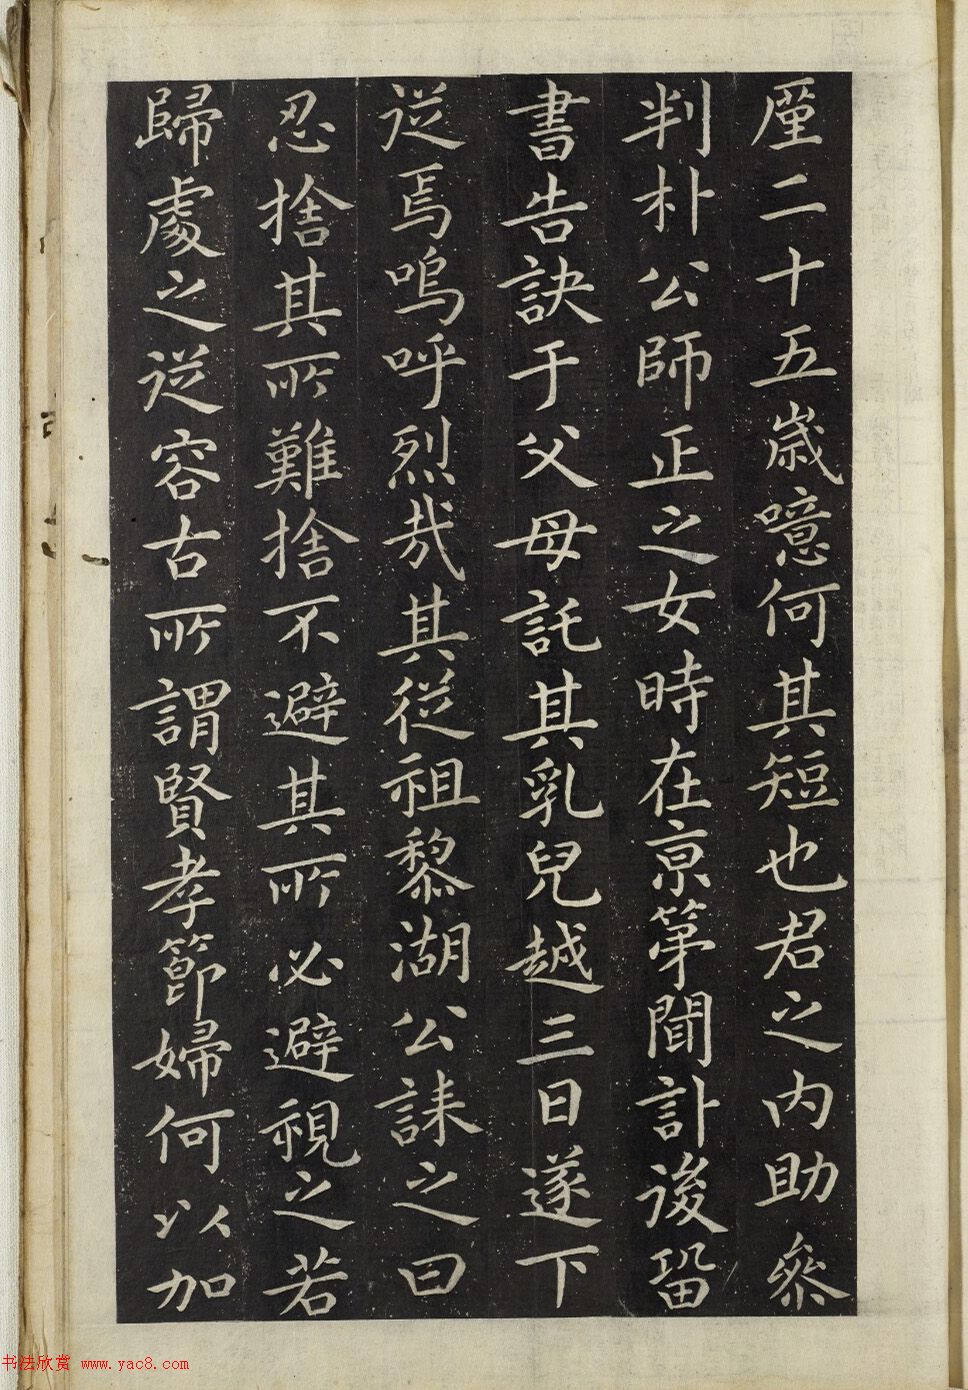 厪二十五歳噫何其短也君之内助叅
判朴公師正之女時在亰第聞訃後畱
書告訣于父母託其乳兒越三日遂下
従焉嗚呼烈㦲其從祖黎湖公誄之曰
忍捨其所難捨不避其所必避視之若
歸處之従容古所謂賢孝節婦何以加
书法欣赏 www.yac8.com